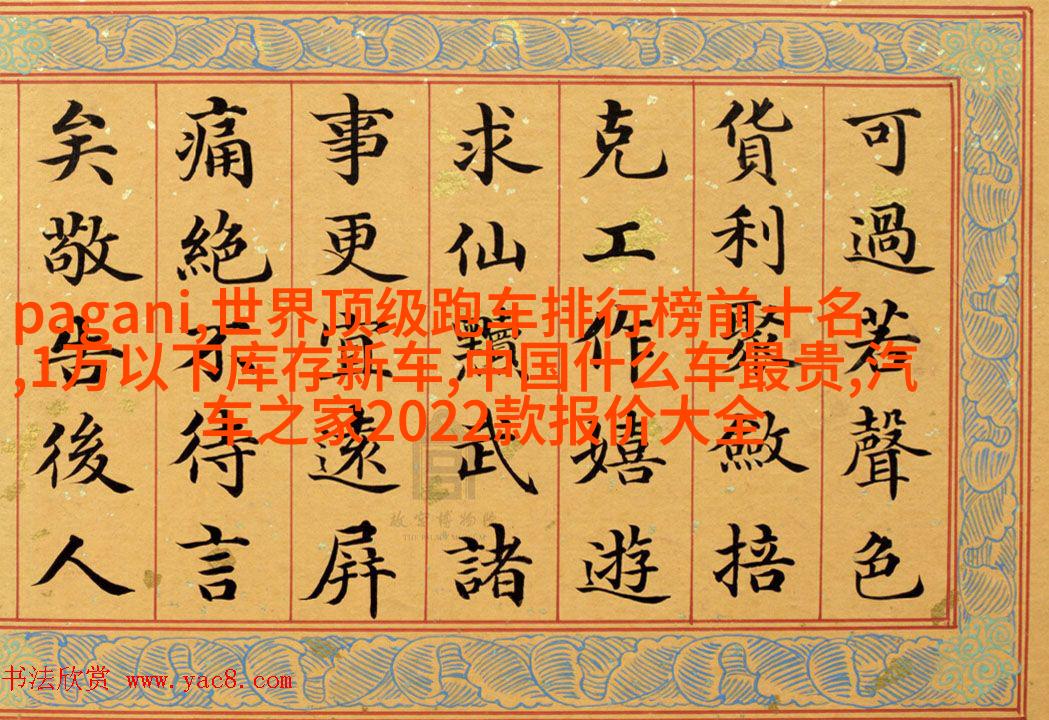 可過若聲色
貨利聚斂掊
克工作嬉遊
求仙黷武諸
事更宜遠屏
痛絕不待言
矣敬告後人
pagani,世界顶级跑车排行榜前十名
,1万以下库存新车,中国什么车最贵,汽
车之家2022款报价大全
故宫博物院
THE PALACE MUSEUM
书法欣赏 www.yac8.com